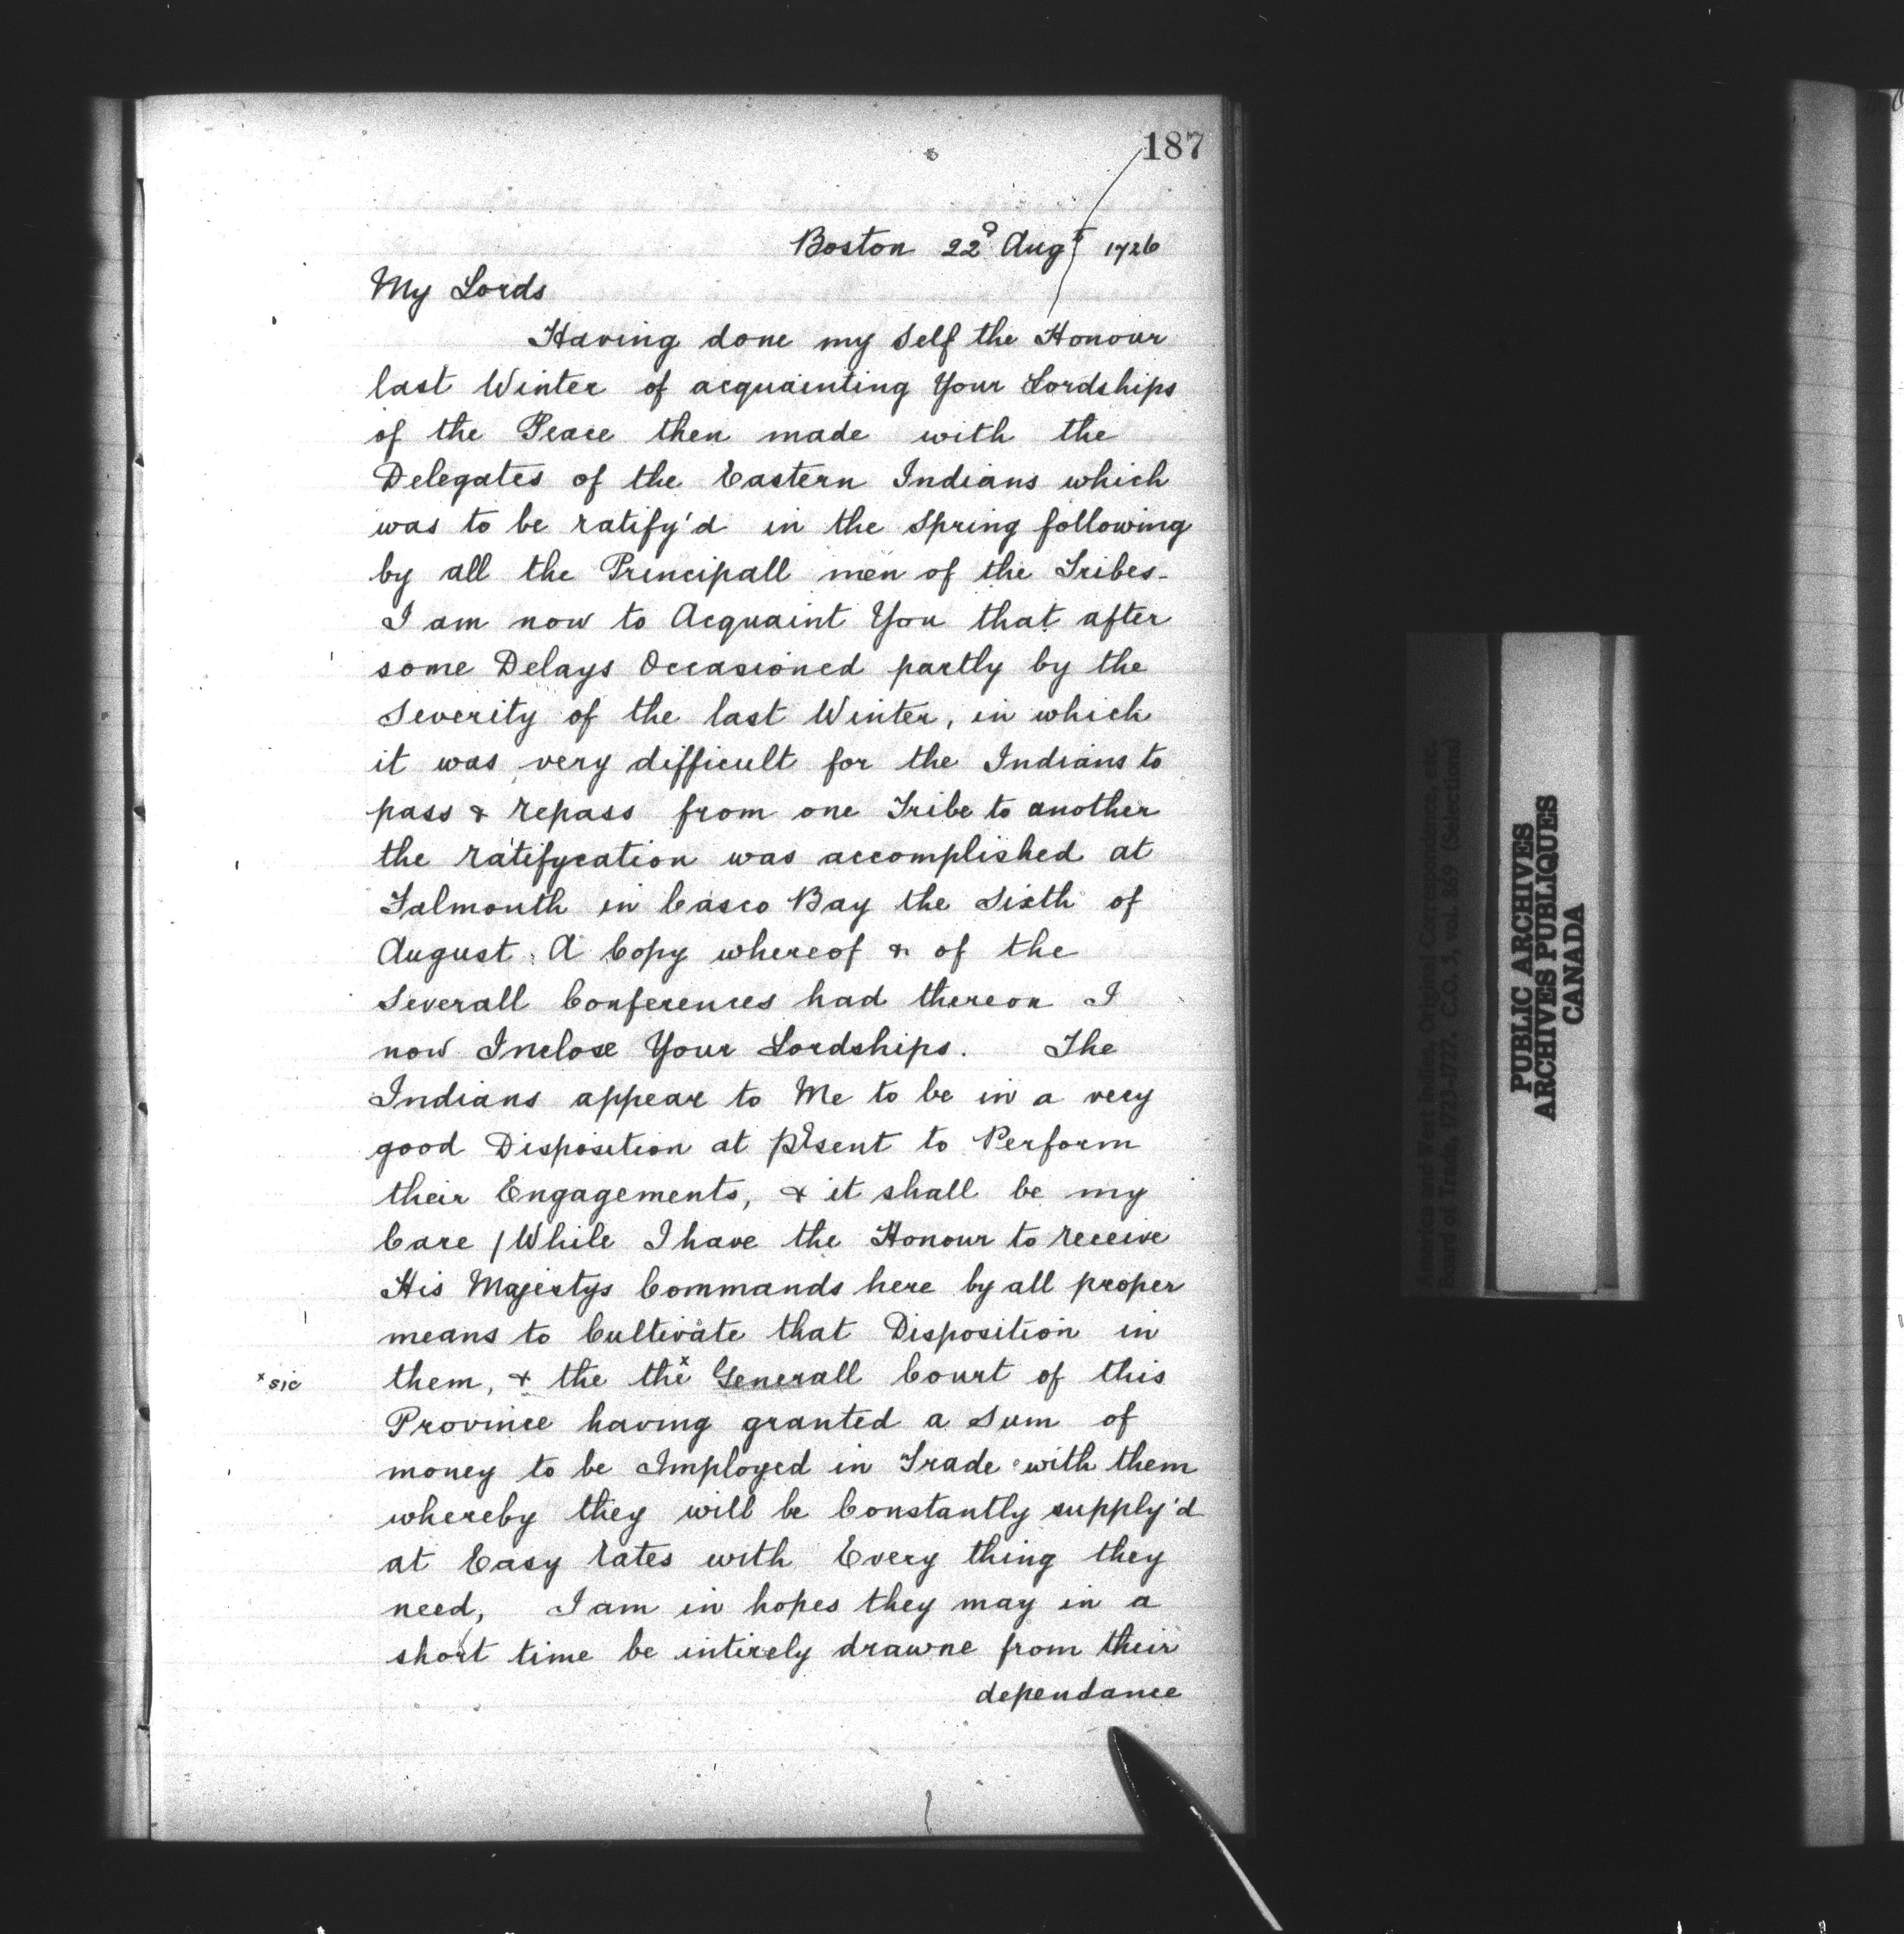 187
Boston 22d Augt 1726
My Lords
Having done my Self the Honour
last Winter of acquainting Your Lordships
of the Peace then made with the
Delegates of the Eastern Indians which
was to be ratify'd in the Spring following
by all the Principall men of the Tribes-
I am now to Acquaint You that after
some Delays Occasioned partly by the
Severity of the last Winter, in which
it was very difficult for the Indians to
pass & repass from one Tribe to another
the ratifycation was accomplished at
Falmouth in Casco Bay the Sixth of
August. A Copy whereof & of the
Severall Conferences had thereon I
now Inclose Your Lordships. The
Indians appear to Me to be in a very
good Disposition at psent to Perform
their Engagements, & it shall be my
Care / While I have the Honour to receive
His Majestys Commands here by all proper
means to Cultivate that Disposition in
x sic them, & the the x Generall Court of this
Province having granted a Sum of
money to be Imployed in Trade with them
whereby they will be Constantly supply'd
at Easy rates with Every thing they
need, I am in hopes they may in a
short time be intirely drawne from their
dependance
America and West Indies, Original Correspondence, etc.
Board of Trade, 1723-1727. C.O. 5, vol. 869 (Selections)
PUBLIC ARCHIVES
ARCHIVES PUBLIQUES
CANADA